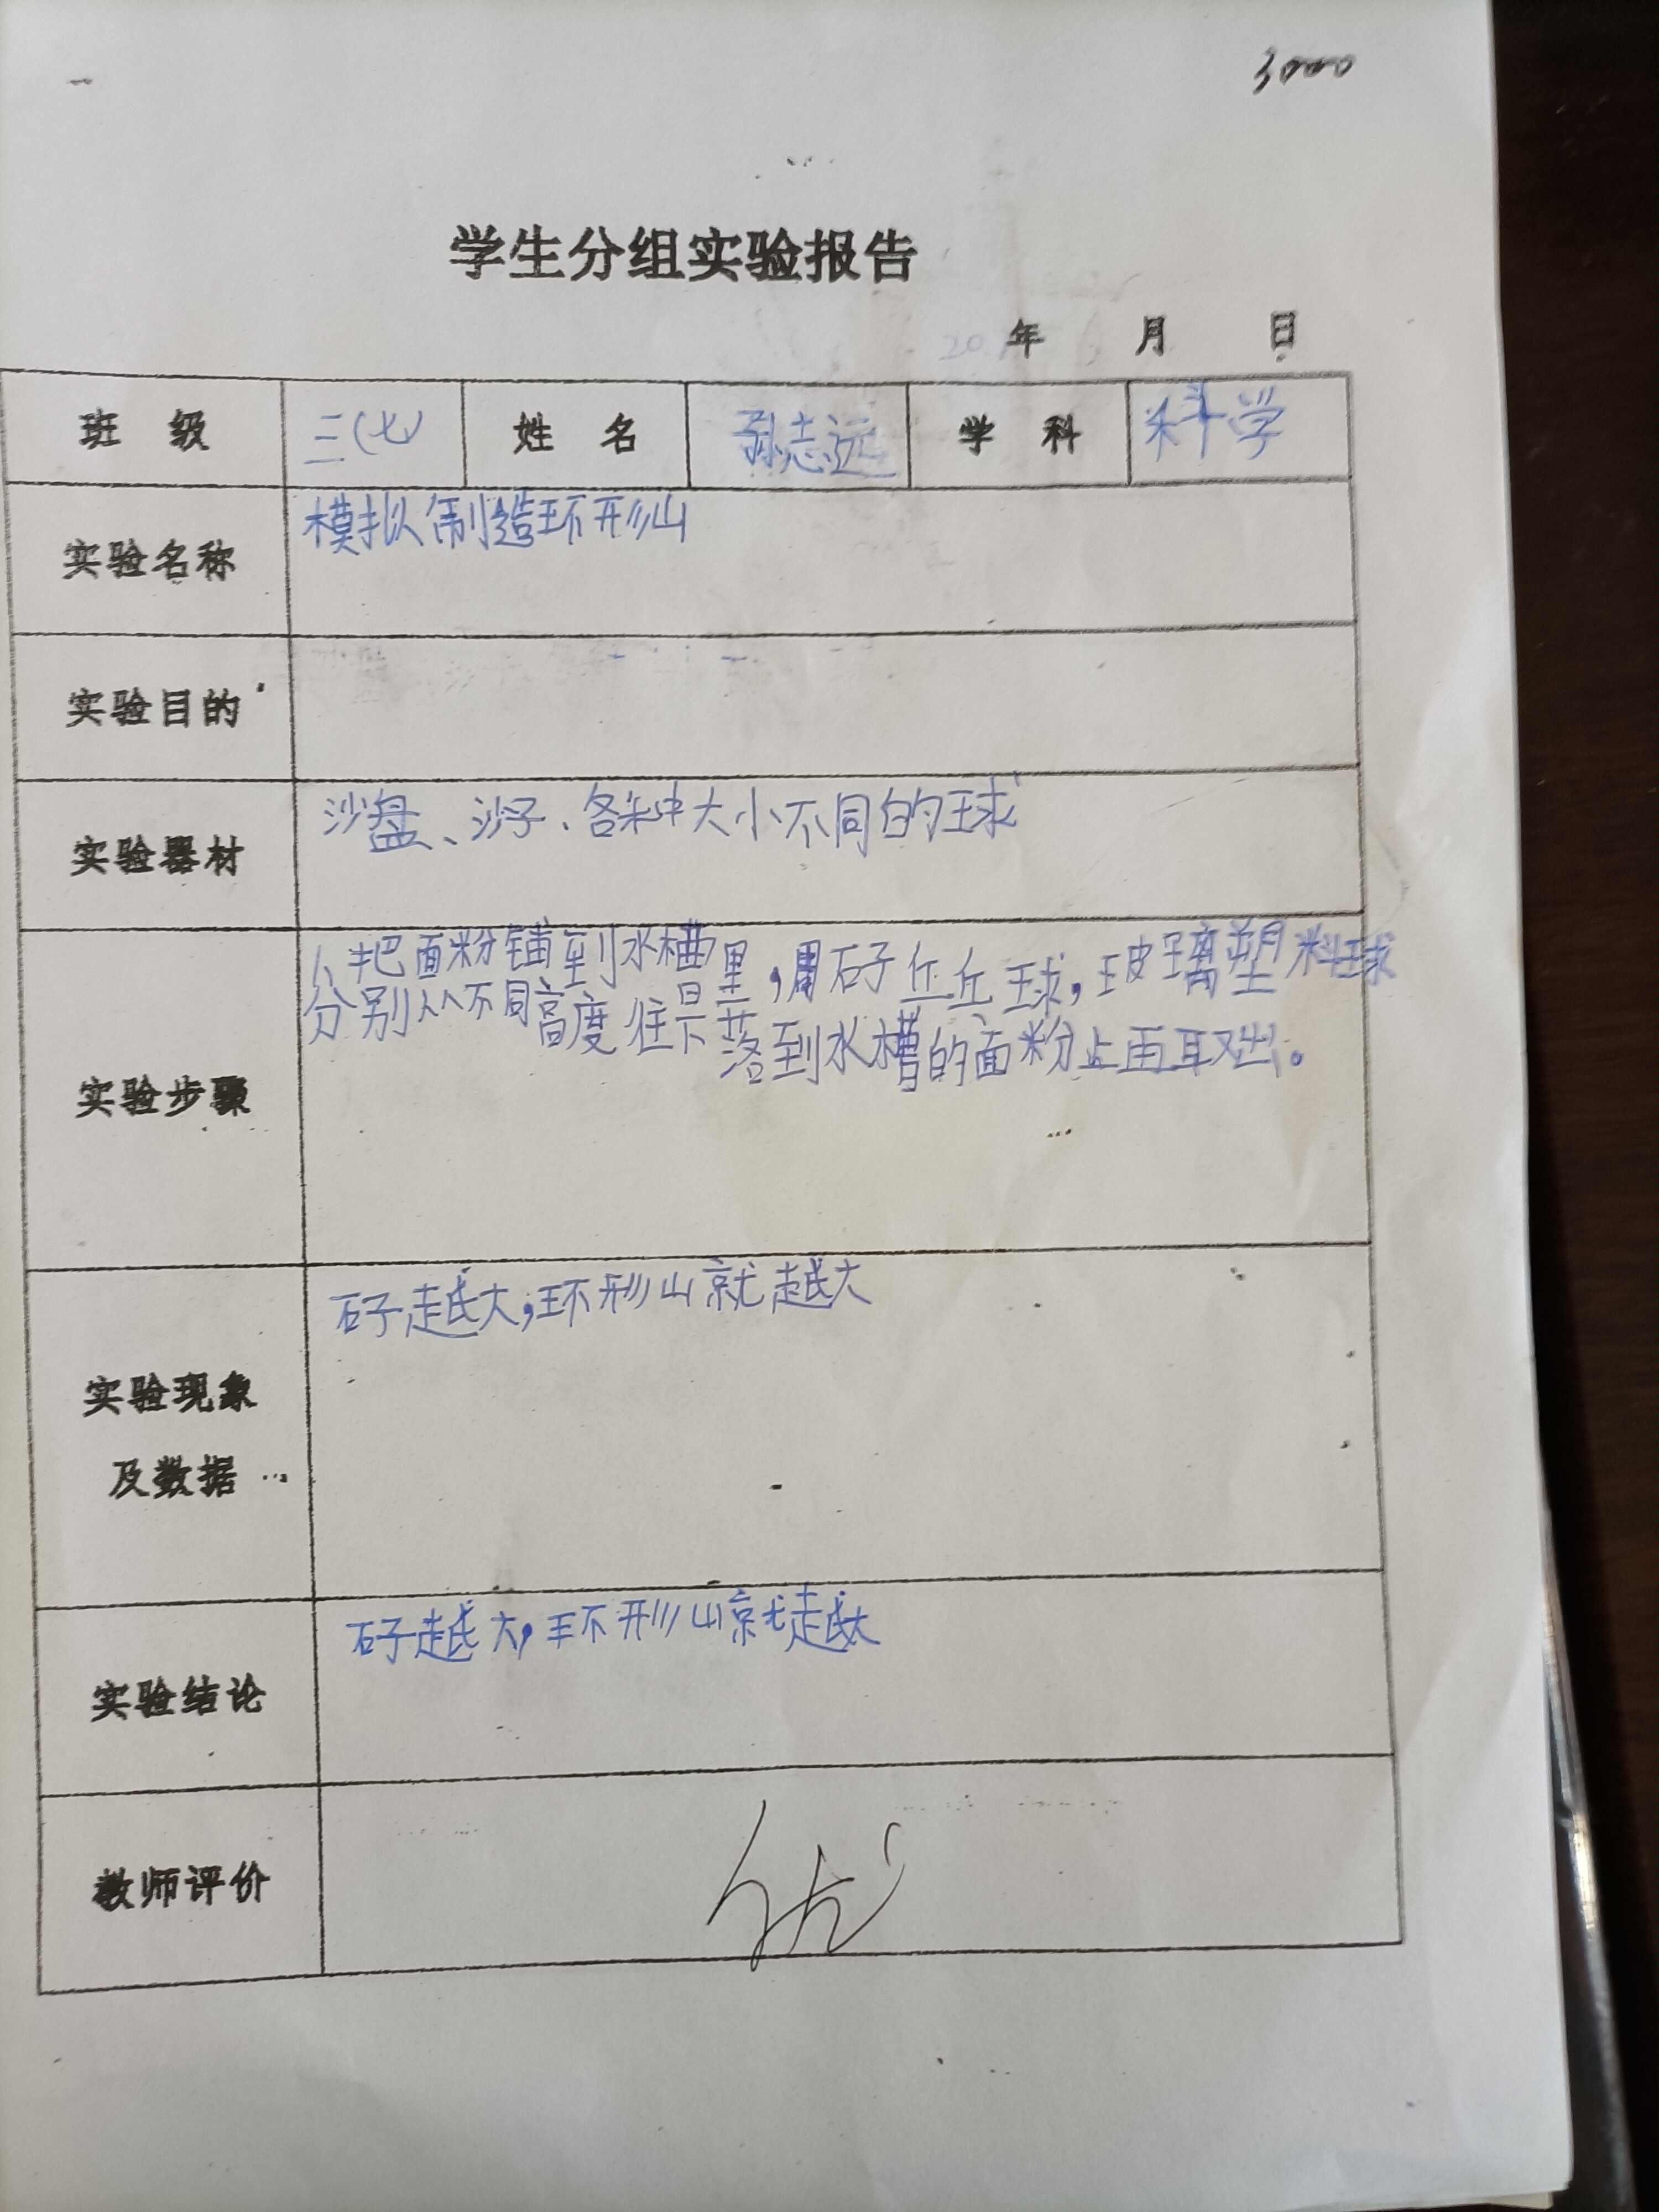 3000
学生分组实验报告
20 年 月 日
班 级 三(七) 姓 名 孙志远 学 科 科学
实验名称 模拟制造环形山
实验目的
实验器材 沙盘、沙子、各种大小不同的球
实验步骤
1、把面粉铺到水槽里,用石子乒乓球,玻璃塑料球
分别从不同高度往是下落到水槽的面粉上再取出。
实验现象
及数据
石子越大,环形山就越大
实验结论 石子越大,环形山就越大
教师评价 优